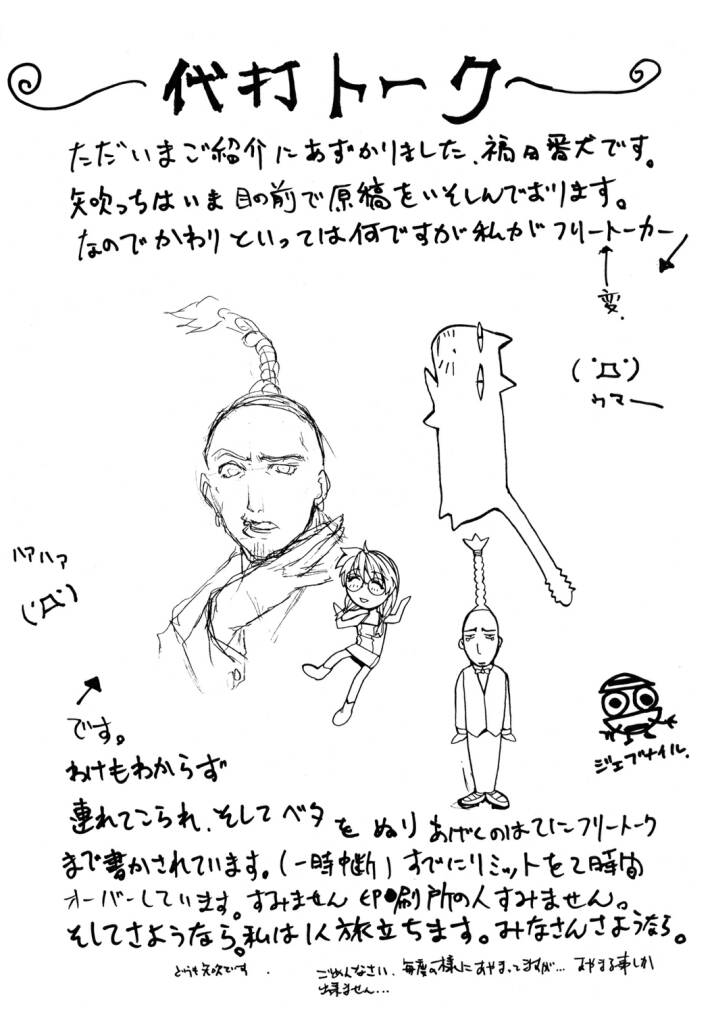 代打トーク
ただいまご紹介にあずかりました、福田番犬です。
矢吹っちはいま目の前で原稿をいそしんでおります。
なのでかわりといっては何ですが私がフリートーカー
変。
(゚Д゚)
ウマー
ハアハア
(゚Д゚)
です。
わけもわからず
ジェブナイル.
連れてこられ、そしてベタをぬりあげくのはてにフリートーク
まで書かされています。(一時中断)すでにリミットを2時間
オーバーしています。すみません印刷所の人すみません。
そしてさようなら。私は1人旅立ちます。みなさんさようなら。
どうも矢吹です.
ごめんなさい.毎度の様にあやまってますが…あやまる事しか
出来ません…